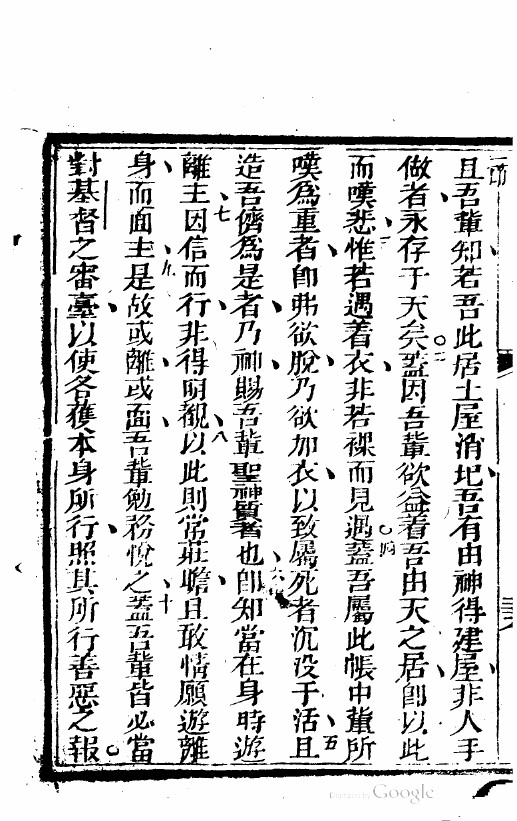 且吾輩知若吾此居土屋消圮吾有由神得建屋非人手
做者永存于天矣○二蓋因吾輩欲益着吾由天之居卽以此
而嘆悲三惟若遇着衣非若裸而見遇○四蓋吾屬此帳中輩所
嘆爲重者卽弗欲脫乃欲加衣以致屬死者沉没于活五且
造吾儕爲是者乃神賜吾輩聖神質者也六卽知當在身時遊
離主七因信而行非得明觀八以此則常莊瞻且敢情願遊離
身而面主九是故或離或面吾輩勉務悅之十蓋吾輩皆必當
對基督之審臺以使各獲本身所行照其所行善惡之報○
Digitized by Google